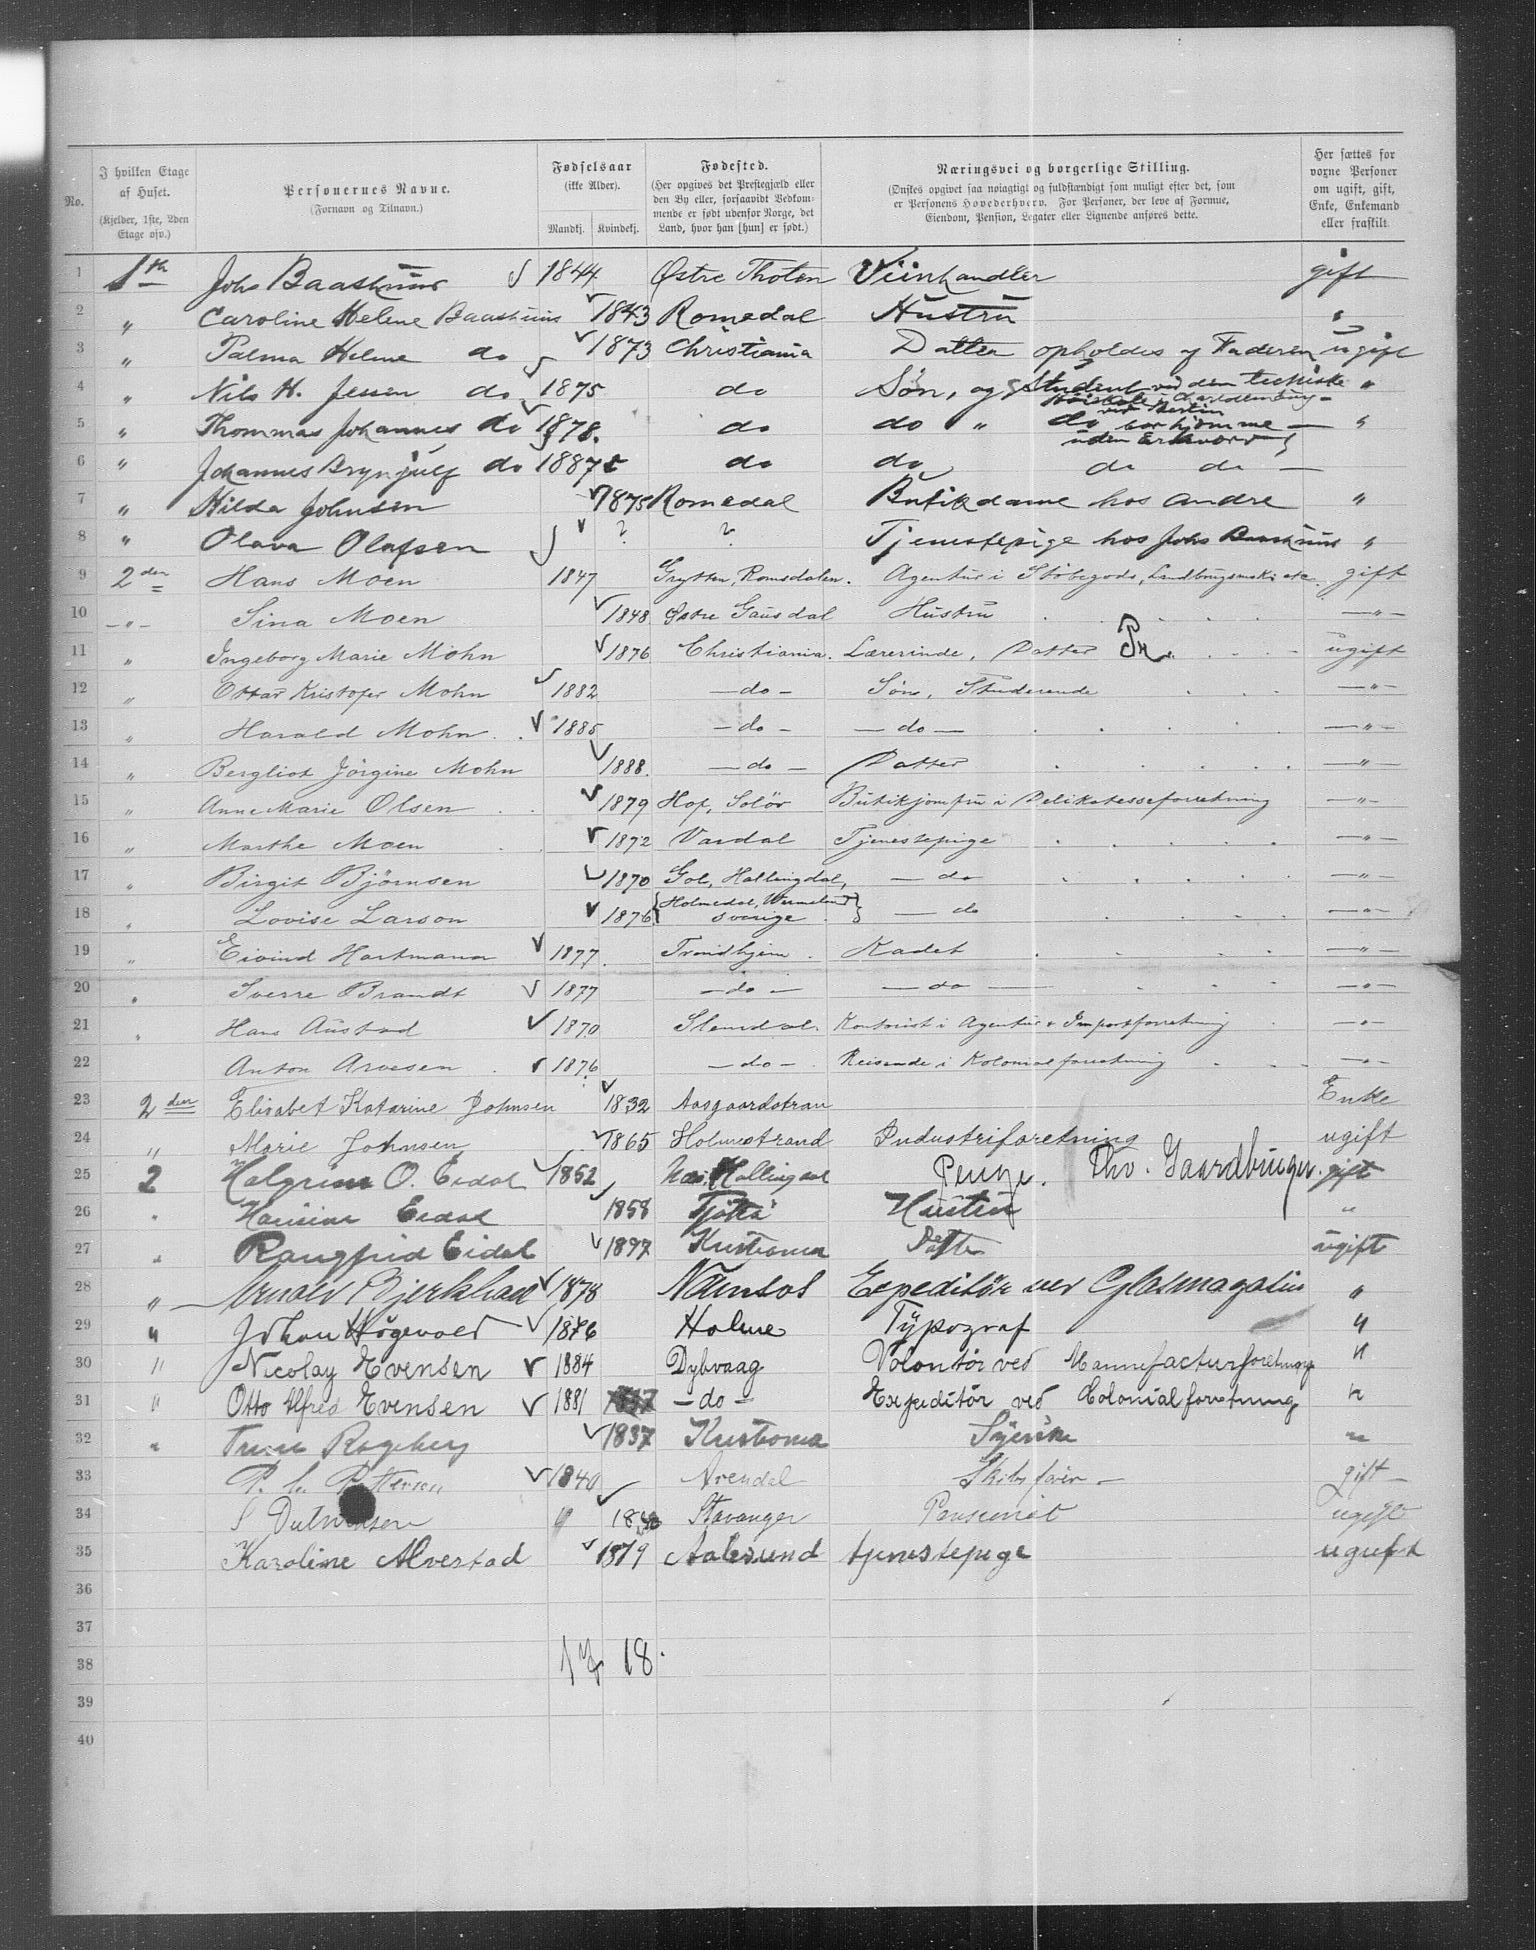 No. | I hvilken Etage af Huset. (Kjelder, 1ste, 2den Etage osv.) | Personernes Navne. (Fornavn og Tilnavn.) | Fødselsaar (ikke Alder). Mandkj. Kvindekj. | Fødested. (Her opgives det Prestegjæld eller den By eller, forsaavidt Vedkommende er født udenfor Norge, det Land, hvor han [hun] er født.) | Næringsvei og borgerlige Stilling. (Ønskes opgivet saa nøiagtigt og fuldstændigt som muligt efter det, som er Personens Hovederhverv. For Personer, der leve af Formue, Eiendom, Pension, Legater eller Lignende anføres dette. | Her sættes for voxne Personer om ugift, gift, Enke, Enkemand eller fraskilt.
1 1th Johs Baashuus 1844 Østre Thoten Viinhandler gift
2 " Caroline Helene Baashuus 1843 Romedal Hustru "
3 " Palma Helene do 1873 Christiania Datter opholdes af Faderen ugift
4 " Nils H. Jessen do 1875 do Søn, og Student ved den techiske Høiskole Charlottenburg ved Berlin "
5 " Thommas Johannes do 1878. do do " do bor hjemme uden Erhverv "
6 " Johannes Brynjulf do 1887 do do do do —
7 " Hilda Johnsen 1875 Romedal Butikdame hos andre "
8 " Olava Olafsen ? ? Tjenestepige hos Johs Baashuus "
9 2den Hans Moen 1847 Grytten, Romsdalen. Agentur i Støbegods, Landbrugsmask. etc. gift
10 —"— Sina Moen 1848 Østre Gausdal Hustru —"—
11 " Ingeborg Marie Mohn 1876 Christiania. Lærerinde, Datter ugift
12 " Ottar Kristofer Mohn 1882 —do— Søn, Studerende —"—
13 " Harald Mohn 1885 —do— —do— —"—
14 " Bergliot Jörgine Mohn 1888. —do— Datter —"—
15 " Anne Marie Olsen 1879 Hof, Solör Butikjomfru i Delikatesseforretning —"—
16 " Marthe Moen 1872 Vardal Tjenestepige —"—
17 " Birgit Björnsen 1870 Gol, Hallingdal, —do —"—
18 " Lovise Larson 1876 {Holmedal, Wermeland Sverige} —do —"—
19 " Eivind Hartmann 1877 Trondhjem. Kadet —"—
20 " Sverre Brandt 1877 —do— —do— —"—
21 " Hans Austad 1870 Kontorist i Agentur & Importforretning —"—
22 Anton Arvesen 1876 —do— Reisende i Kolonialforretning —"—
23 2den Elisabet Katarine Johnsen 1832 Aasgaardstran Enke
24 " Marie Johnsen 1865 Holmestrand Industriforetning ugift
25 2 Halgrim O. Eidal 1852 Hallingdal Thv. Gaardbruger. gift
26 " Eidal 1858 Tjøtta Hustru "
27 " Rangfrid Eidal 1897 Kristiania Datter ugift
28 " Arnold Bjerkhas 1878 Namsos Expeditör ved Glasmagasin "
29 " Johan Høgevold 1876 Holme Typograf "
30 " Nicolay Evensen 1884 Dybvaag Volontör ved Mannefacturforetning "
31 " Otto Alfred Evensen 1881 —do— Expeditör ved Colonialforetning "
32 " Trine Rogeberg 1837 Kristiania Syerske "
33 P. C. Pettersen 1840 Arendal Skibsfører — gift —
34 S Stavanger ugift
35 Karoline Alvestad 1879 Aalesund tjenestepige ugift
36
37
38 17 18.
39
40